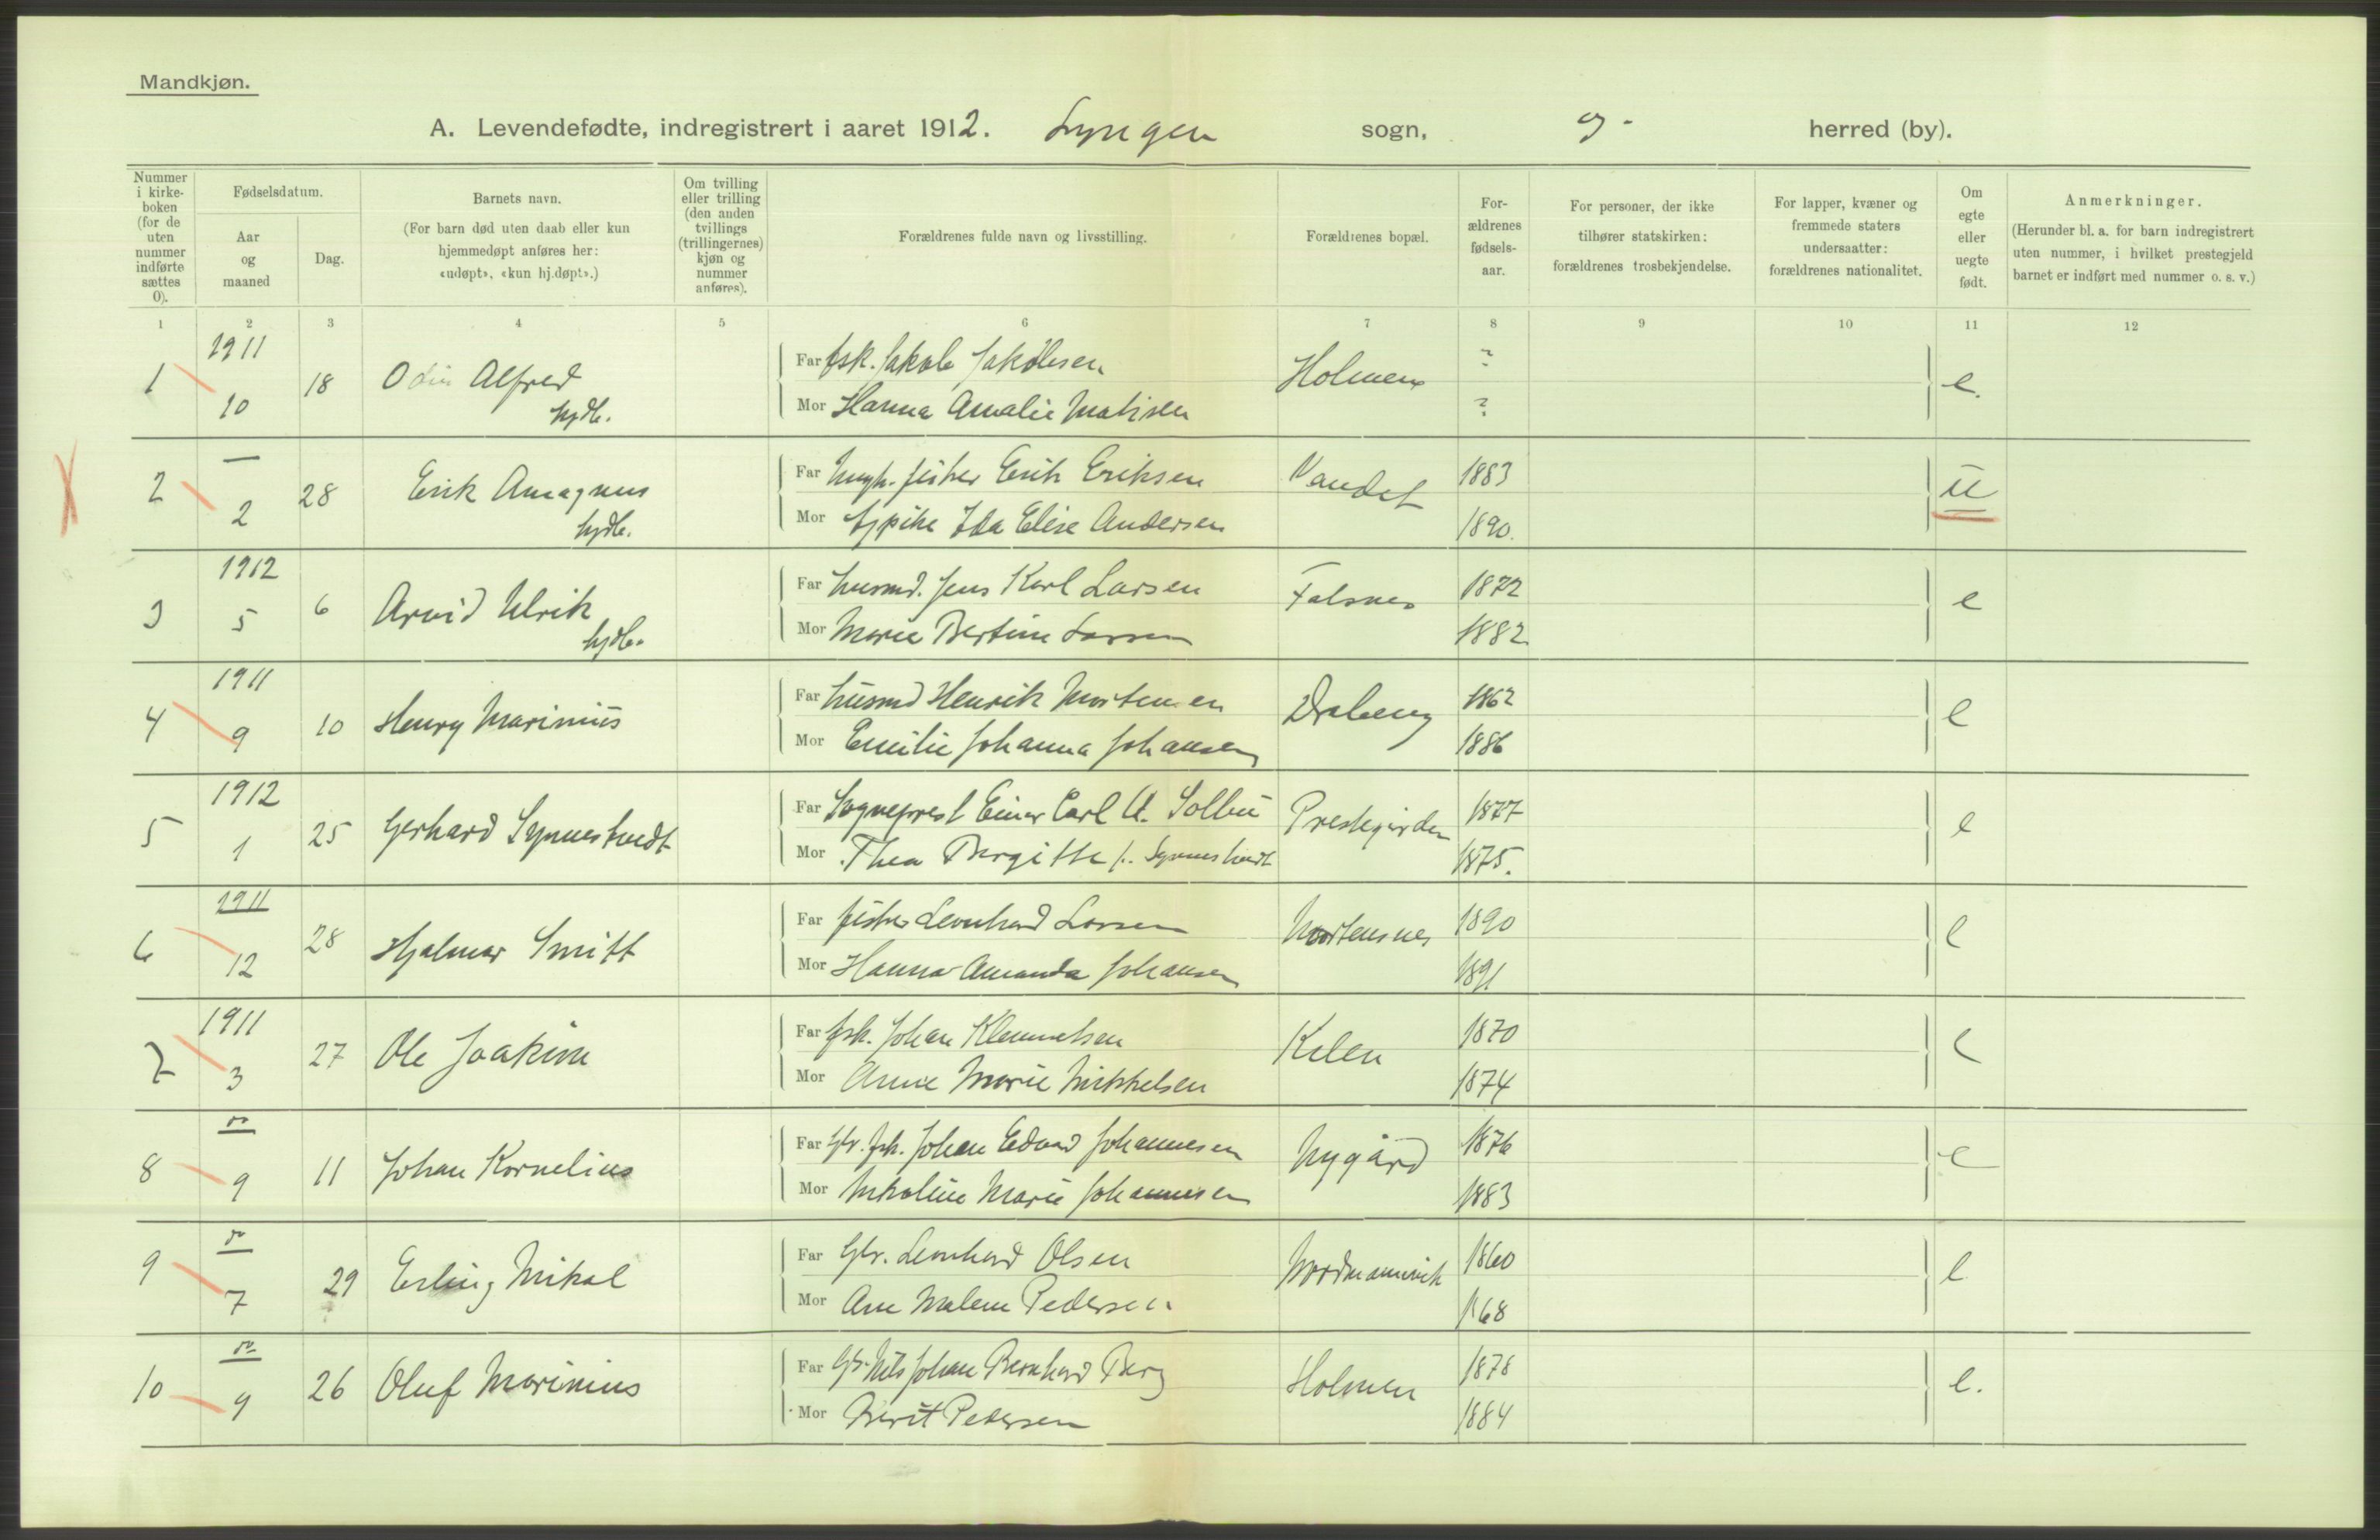 Mandkjøn.
A. Levendefødte, indregistrert i aaret 1912. Lyngen sogn, herred (by).
Nummer i kirke-boken (for de uten nummer indførte sættes 0).
Fødselsdatum.
Aar og maaned
Dag.
Barnets navn.
(For barn død uten daab eller kun hjemmedøpt anføres her: «udøpt», «kun hj.døpt».)
Om tvilling eller trilling (den anden tvillings (trillingernes) kjøn og nummer anføres).
Forældrenes fulde navn og livsstilling.
Forældrenes bopæl.
For-ældrenes fødsels-aar.
For personer, der ikke tilhører statskirken: forældrenes trosbekjendelse.
For lapper, kvæner og fremmede staters undersaatter: forældrenes nationalitet.
Om egte eller uegte født.
Anmerkninger.
(Herunder bl. a. for barn indregistrert uten nummer, i hvilket prestegjeld barnet er indført med nummer o. s. v.)
1 2 3 4 5 6 7 8 9 10 11 12
1 1911 10 18 Odin Alfred hjdb. Far fsk. Jakob Jakobsen Holmen ? e.
Mor Hanna Amalie Matisen ?
2 — 2 28 Erik Amagnus hjdb. Far Ungk. fisker Erik Eriksen Vandet 1883 u
Mor pike Ida Elise Andersen 1890.
3 1912 5 6 Arvid Ulrik hjdb. Far husmd. Jens Karl Larsen Falsnes 1872 e
Mor Marie Bertine Larsen 1882
4 1911 9 10 Henry Marinius Far husmd Henrik Mortensen 1862 e
Mor Emilie Johanna Johansen 1886
5 1912 1 25 Gerhard Synnestvedt Far Sogneprest Einar Carl A. Solbu Prestegården 1877 e
Mor Thea Birgitte f. Synnestvedt 1875.
6 1911 12 28 Hjalmar Smitt Far fisker Leonhard Larsen Mortensnes 1890 e
Mor Hanna Amanda Johansen 1891
7 1911 3 27 Ole Joakim Far fsk. Johan Klemmetsen Kilen 1870 e
Mor Anne Marie Mikkelsen 1874
8 do 9 11 Johan Kornelius Far Gbr. fsk. Johan Edvard Johannesen Nygård 1876 e
Mor Nikoline Marie Johannesen 1883
9 do 7 29 Erling Mikal Far Gbr. Leonhard Olsen Nordmannvik 1860 e
Mor Ane Malene Pedersen 1868
10 do 9 26 Oluf Marinius Far Gbr. Nils Johan Bernhard Berg Holmen 1878 e.
Mor Berit Pedersen 1884